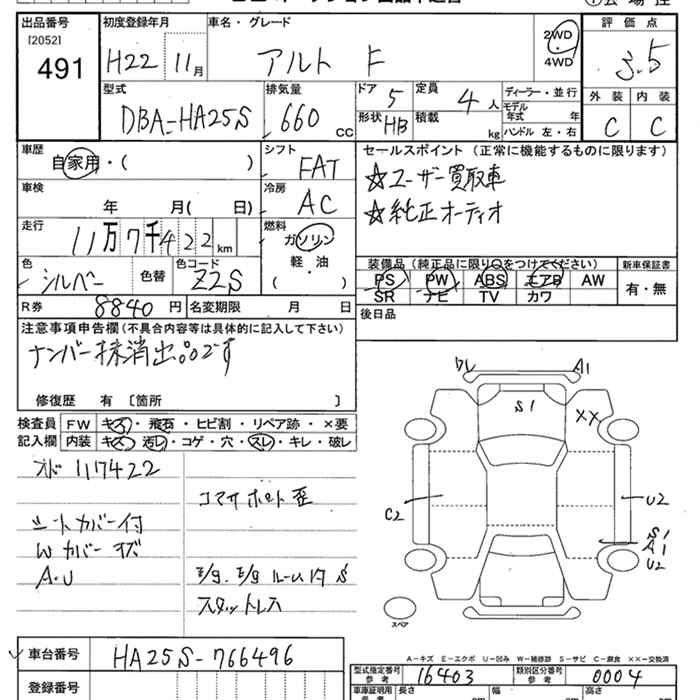 出品番号
[2052]
491
初度登録年月
H22 11月
車名・グレード
アルト F
2WD
4WD
評価点
3.5
外装 内装
C C
型式
DBA-HA25S
排気量
660 cc
ドア 5
定員 4 人
形状 HB
積載 kg
ディーラー・並行
モデル年式 年
ハンドル 左・右
車歴
自家用・( )
シフト
FAT
セールスポイント (正常に機能するものに限ります)
☆ユーザー買取車
☆純正オーディオ
車検
年 月( 日)
冷房
AC
走行
11万7千422km
燃料
ガソリン
軽・油
( )
色
シルバー
色替
色コード
Z2S
装備品 (純正品に限り○をつけてください)
PS PW ABS エアB AW
SR ナビ TV カワ
新車保証書
有・無
R券 8840円
名変期限 月 日
後日品
注意事項申告欄(不具合内容等は具体的に記入して下さい)
ナンバー抹消出品です
修復歴 有 [箇所 ]
検査員記入欄
FW キズ・飛石・ヒビ割・リペア跡・×要
内装 キズ・汚レ・コゲ・穴・スレ・キレ・破レ
オド 117422
コアサポート歪
シートカバー付
Wカバーキズ
A・U
E/g. E/gルーム内S
スタットレス
A1
S1
XX
C2
U2
S1
A1
U2
スペア
A-キズ E-エクボ U-凹み W-補修跡 S-サビ C-腐食 XX-交換済
車台番号 HA25S-766496
登録番号
型式指定番号 参考 16403
類別区分番号 参考 0004
車庫証明用
長さ cm
幅 cm
高さ cm